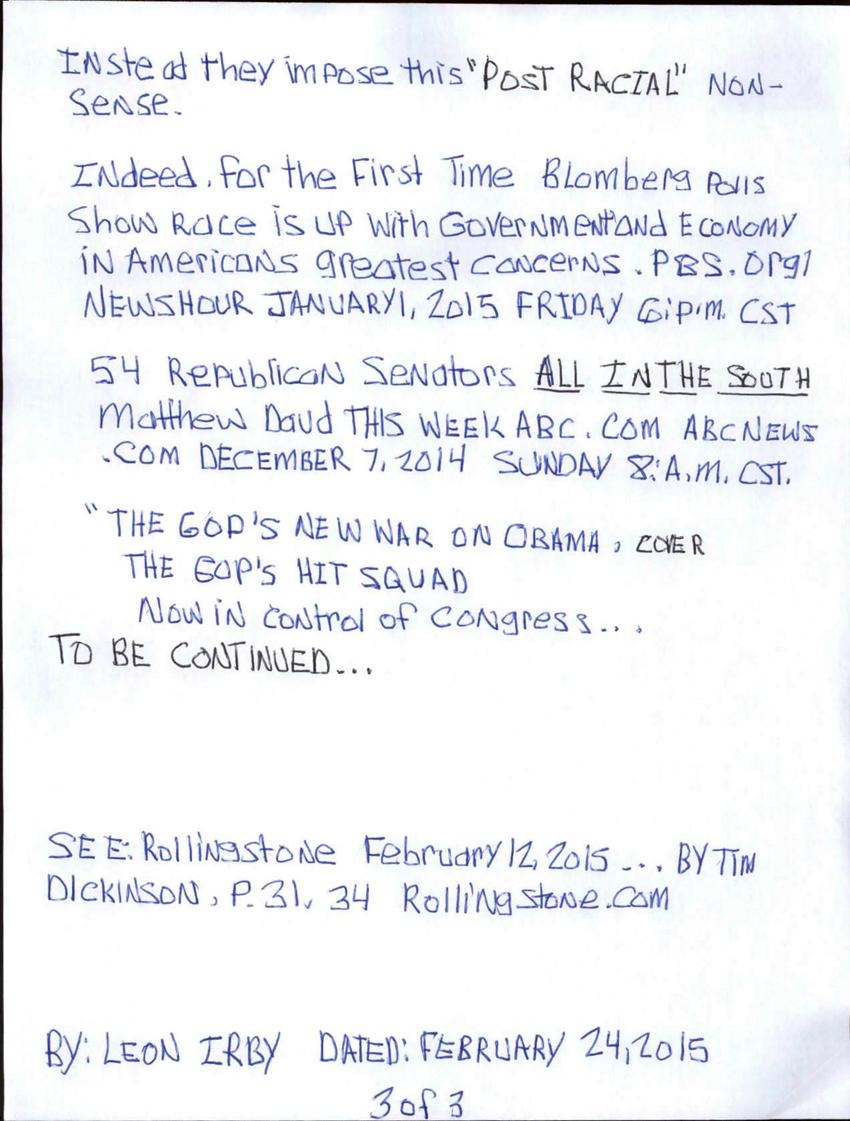 INstead they impose this "POST RACIAL" NON-
Sense.
INdeed, for the First Time Blomberg Polls
Show Race is UP With GOVERNMENT and ECONOMY
iN AmericaNs greatest concerns. PBS.Org/
NEWSHOUR JANUARY 1, 2015 FRIDAY 6:P.M. CST
54 RepublicaN SeNators ALL IN THE SOUTH
Matthew Daud THIS WEEK ABC.COM ABCNEWS
.COM DECEMBER 7, 2014 SUNDAY 8:A.M. CST.
"THE GOP'S NEW WAR ON OBAMA, COVER
THE GOP'S HIT SQUAD
Now iN Control of CONgress...
TO BE CONTINUED...
SEE: RolliNgstoNe February 12, 2015 ... BY TIM
DICKINSON, P. 31, 34 RolliNgstoNe.Com
BY: LEON IRBY DATED: FEBRUARY 24, 2015
3 of 3